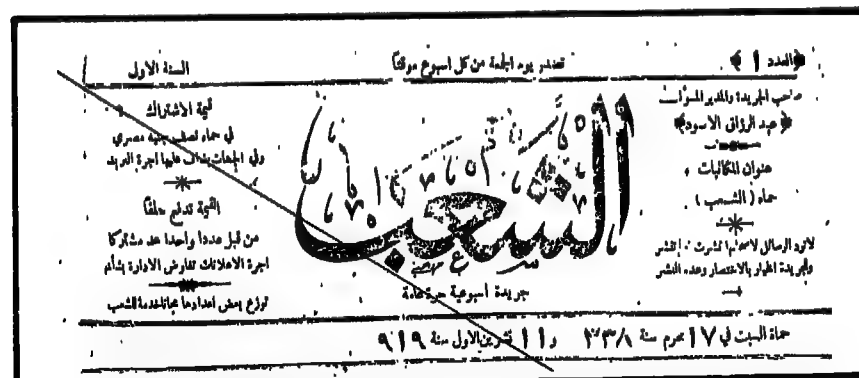 العدد ١
تصدر يوم الجمعة من كل اسبوع موقتاً
السنة الاولى
صاحب الجريدة والمدير المسؤول
عبد الرزاق الاسود
عنوان المكاتبات
حماه (الشعب)
لا ترد الرسائل لاصحابها نشرت ام لم تنشر
وللجريدة الخيار بالاختصار وعدم النشر
الشعب
جريدة اسبوعية حرة عامة
قيمة الاشتراك
في حماه نصف جنيه مصري
وفي الجهات يضاف عليها اجرة البريد
القيمة تدفع سلفاً
من قبل عدداً واحداً عد مشتركا
اجرة الاعلانات تفاوض الادارة بشأنها
توزع بعض اعدادها مجانا خدمة للشعب
حماة السبت في ١٧ محرم سنة ٣٣٨ و١١ تشرين الاول سنة ٩١٩